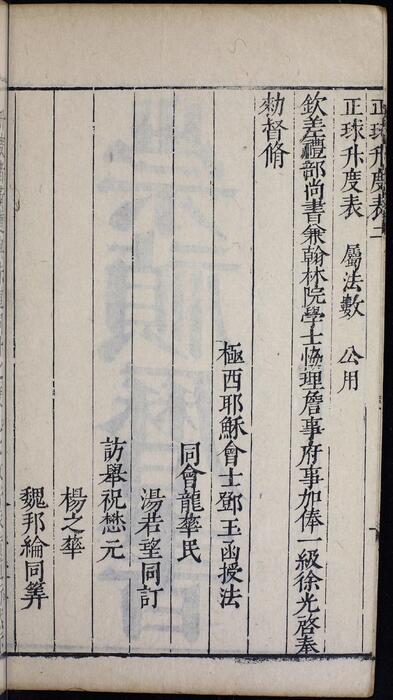 正球升度表二
正球升度表　屬法數　公用
欽差禮部尚書兼翰林院學士協理詹事府事加俸一級徐光啓奉
勑督脩
極西耶穌會士鄧玉函授法
同會龍華民
湯若望同訂
訪舉祝懋元
楊之華
魏邦綸同筭